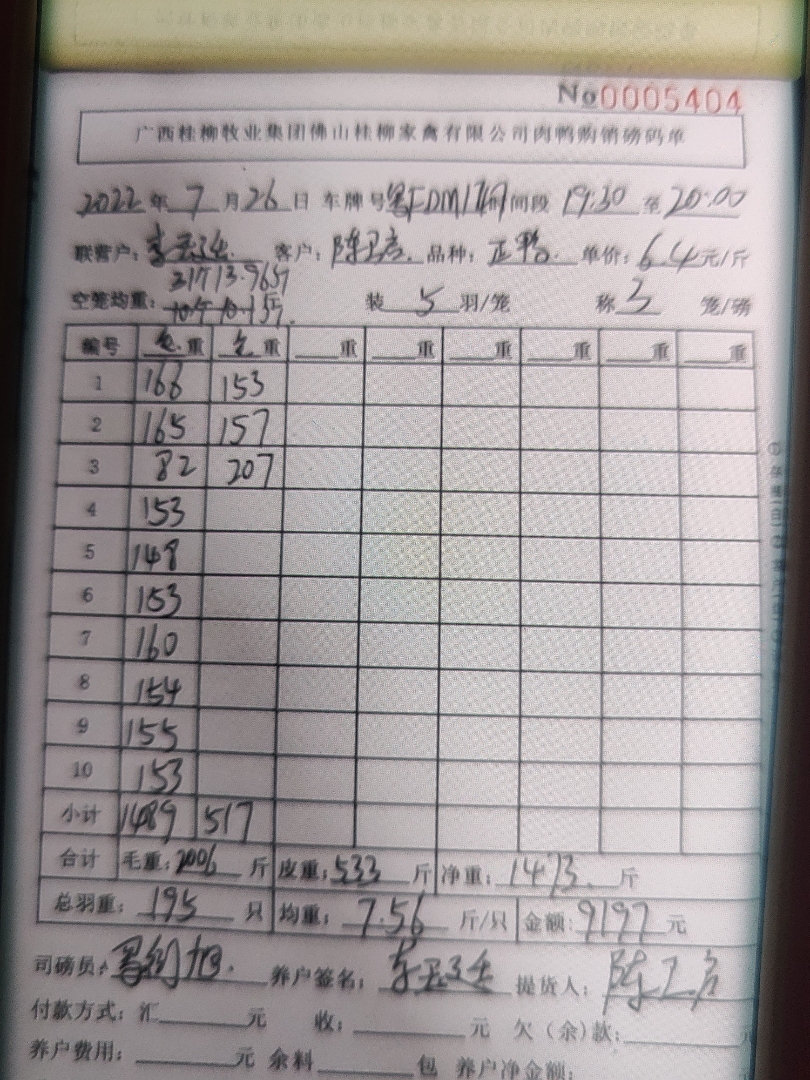 No0005404
广西桂柳牧业集团佛山桂柳家禽有限公司肉鸭购销磅码单
2022年7月26日 车牌号 时间段 19:30 至 20:00
联营户: 客户: 陈卫 品种: 正鸭 单价: 6.4元/斤
空笼均重: 装 5 羽/笼 称 3 笼/磅
编号 重 重 重 重 重 重 重 重
1 166 153
2 165 157
3 82 207
4 153
5 148
6 153
7 160
8 154
9 155
10 153
小计 1489 517
合计 毛重: 2006 斤 皮重: 533 斤 净重: 1473 斤
总羽重: 195 只 均重: 7.56 斤/只 金额: 9197 元
司磅员: 养户签名: 提货人: 陈卫
付款方式: 汇 元 收: 元 欠(余)款:
养户费用: 元 余料 包 养户净金额: